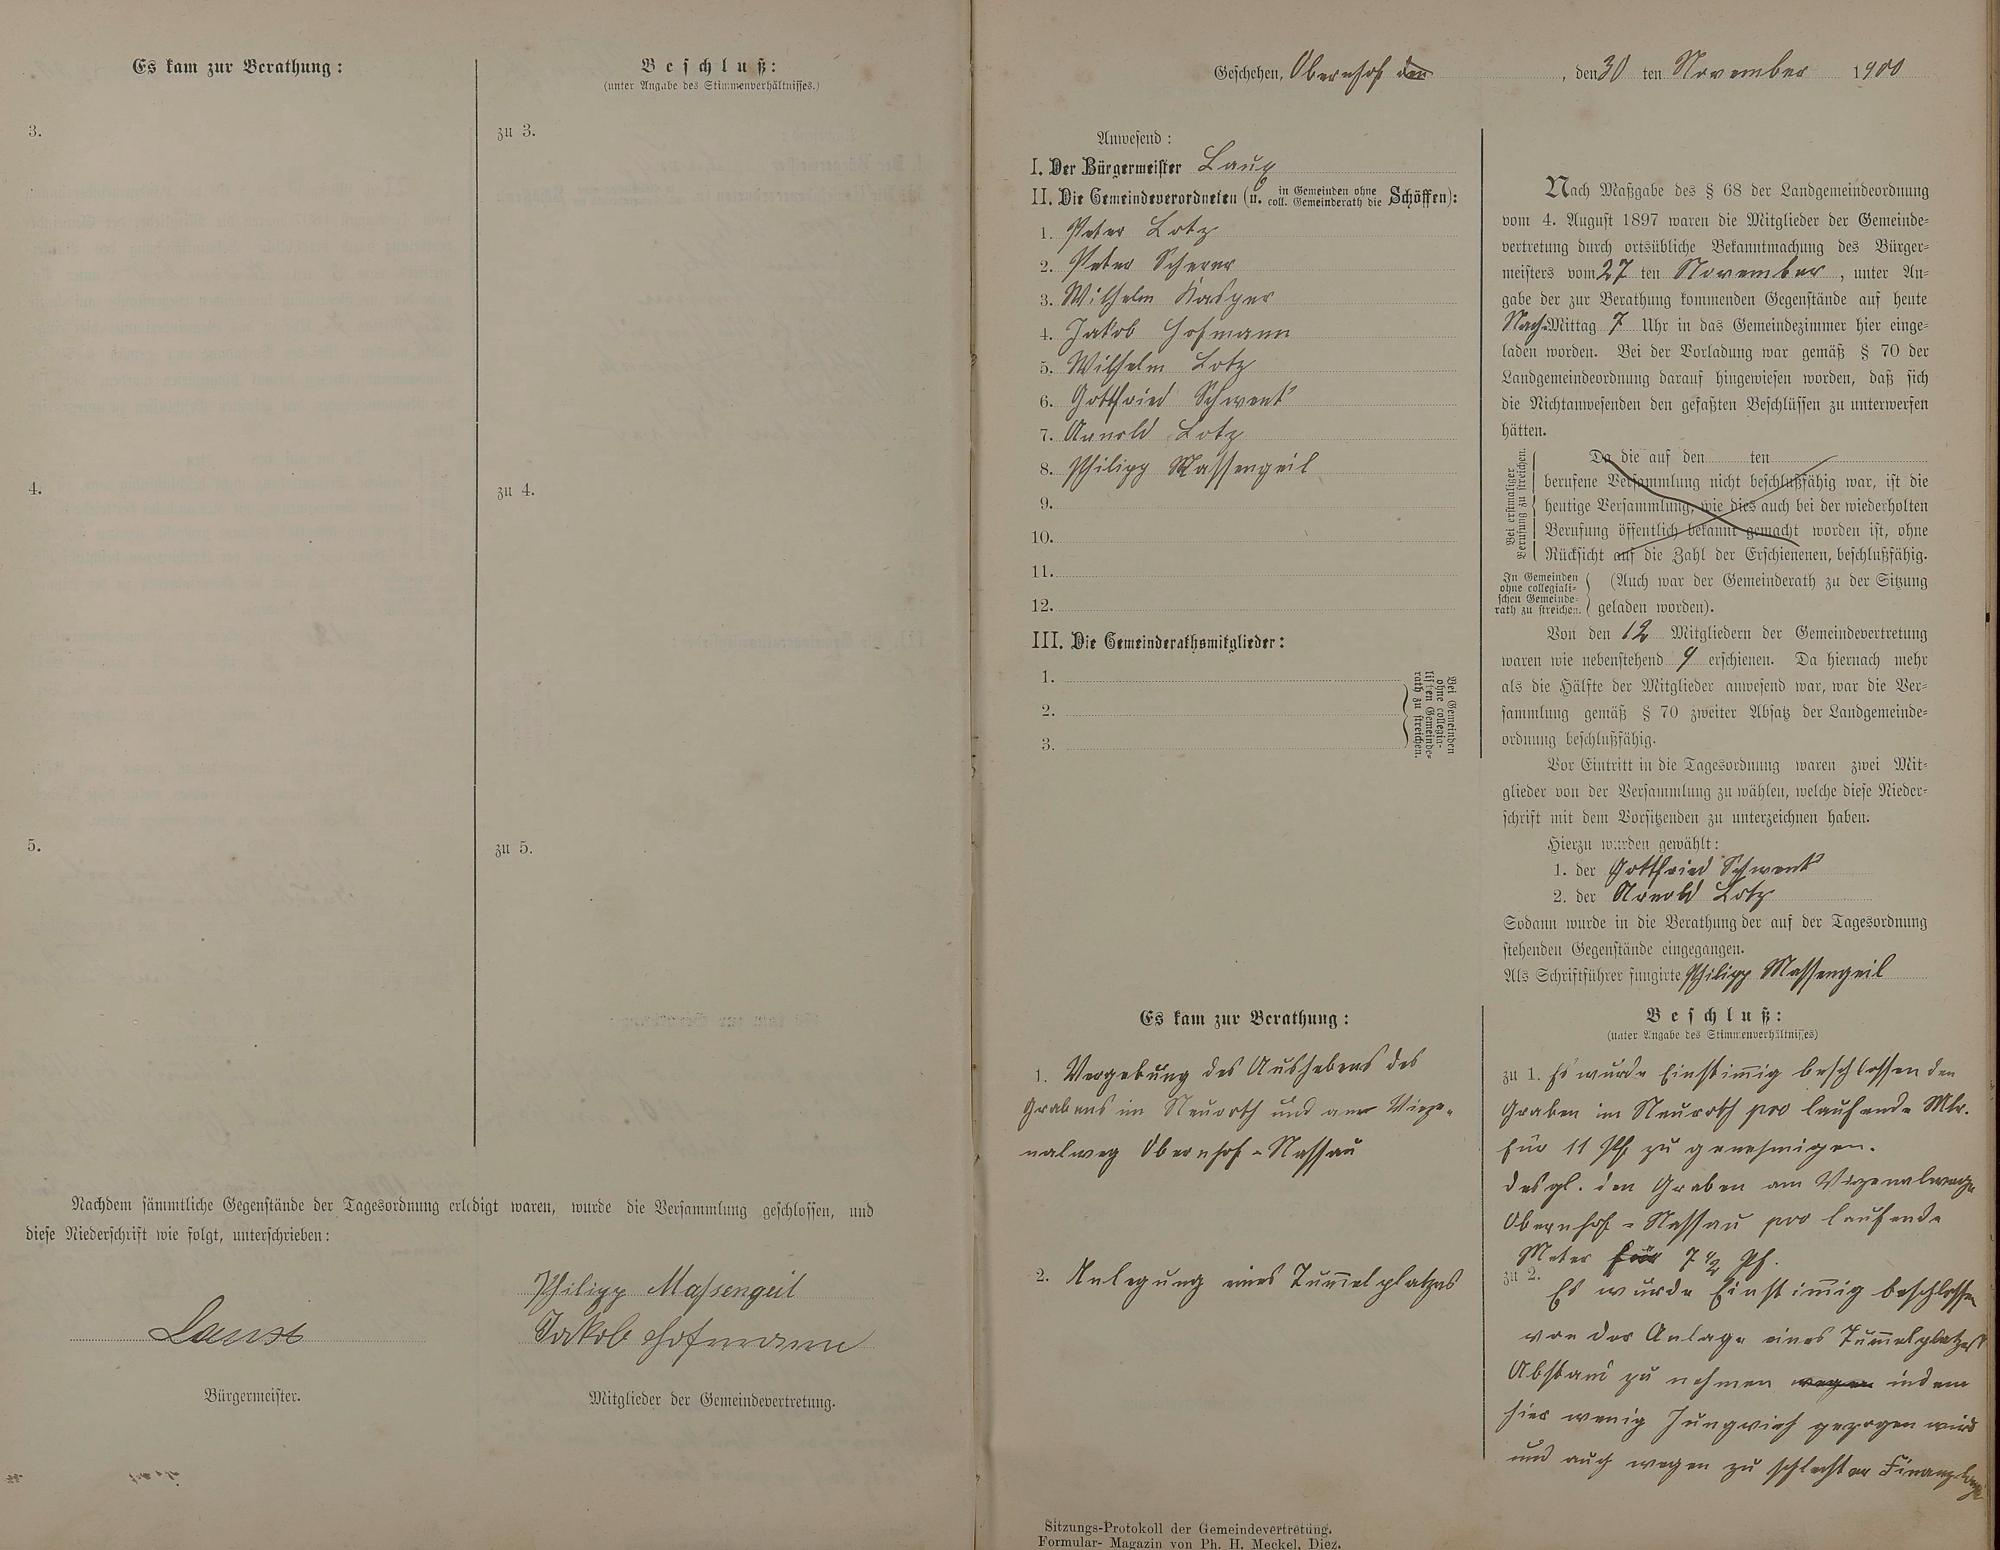 Es kam zur Berathung:
Beschluß:
(unter Angabe des Stimmenverhältnisses.)
3.
zu 3.
4.
zu 4.
5.
zu 5.
Nachdem sämmtliche Gegenstände der Tagesordnung erledigt waren, wurde die Versammlung geschlossen, und
diese Niederschrift wie folgt, unterschrieben:
Philipp Massengeil
Jakob Hofmann
Bürgermeister.
Mitglieder der Gemeindevertretung.
Geschehen, Obernhof den, den 30 ten November 1900
Anwesend:
I. Der Bürgermeister
II. Die Gemeindeverordneten (u. in Gemeinden ohne coll. Gemeinderath die Schöffen):
1. Peter Lotz
2. Peter Scherer
3. Wilhelm Kasper
4. Jakob Hofmann
5. Wilhelm Lotz
6. Gottfried Schwenk
7. Arnold Lotz
8. Philipp Massengeil
9.
10.
11.
12.
III. Die Gemeinderathsmitglieder:
1.
2.
3.
Bei Gemeinden
ohne collegia-
lischen Gemeinde-
rath zu streichen.
Nach Maßgabe des § 68 der Landgemeindeordnung
vom 4. August 1897 waren die Mitglieder der Gemeinde-
vertretung durch ortsübliche Bekanntmachung des Bürger-
meisters vom 27 ten November, unter An-
gabe der zur Berathung kommenden Gegenstände auf heute
Nach-Mittag 7 Uhr in das Gemeindezimmer hier einge-
laden worden. Bei der Vorladung war gemäß § 70 der
Landgemeindeordnung darauf hingewiesen worden, daß sich
die Nichtanwesenden den gefaßten Beschlüssen zu unterwerfen
hätten.
Bei erstmaliger
Berufung zu streichen.
Da die auf den ten
berufene Versammlung nicht beschlußfähig war, ist die
heutige Versammlung, wie dies auch bei der wiederholten
Berufung öffentlich bekannt gemacht worden ist, ohne
Rücksicht auf die Zahl der Erschienenen, beschlußfähig.
In Gemeinden
ohne collegiali-
schen Gemeinde-
rath zu streichen.
(Auch war der Gemeinderath zu der Sitzung
geladen worden).
Von den 12 Mitgliedern der Gemeindevertretung
waren wie nebenstehend 9 erschienen. Da hiernach mehr
als die Hälfte der Mitglieder anwesend war, war die Ver-
sammlung gemäß § 70 zweiter Absatz der Landgemeinde-
ordnung beschlußfähig.
Vor Eintritt in die Tagesordnung waren zwei Mit-
glieder von der Versammlung zu wählen, welche diese Nieder-
schrift mit dem Vorsitzenden zu unterzeichnen haben.
Hierzu wurden gewählt:
1. der Gottfried Schwenk
2. der Arnold Lotz
Sodann wurde in die Berathung der auf der Tagesordnung
stehenden Gegenstände eingegangen.
Als Schriftführer fungirte Philipp Massengeil
Es kam zur Berathung:
1. Vergebung des Aushebens des
Grabens im Neuroth und am Vize-
nalweg Obernhof-Nassau
2. Anlegung eines Tum̄elplatzes
Beschluß:
(unter Angabe des Stimmenverhältnisses)
zu 1. Es wurde Einstim̄ig beschlossen den
Graben im Neuroth pro laufende Mtr.
für 11 Pf zu genehmigen.
desgl. den Graben am Vizenalwege
Obernhof-Nassau pro laufende
Meter für 7 1/2 Pf.
zu 2. Es wurde Einstim̄ig beschlossen
von der Anlage eines Tum̄elplatzes
Abstand zu nehmen wegen indem
hier wenig Jungvieh gezogen wird
und auch wegen zu schlechter Finanzlage
Sitzungs-Protokoll der Gemeindevertretung.
Formular-Magazin von Ph. H. Meckel, Diez.